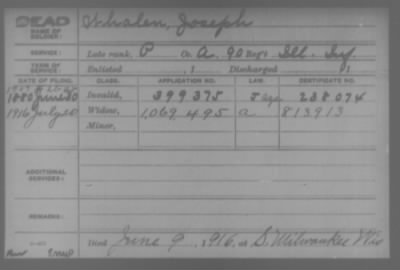 DEAD
NAME OF SOLDIER: Whalen, Joseph
SERVICE: Late rank, P Co. A, 90 Reg't Ill. Inf.
TERM OF SERVICE: Enlisted , 1 Discharged , 1
DATE OF FILING. CLASS. APPLICATION NO. LAW. CERTIFICATE NO.
1880 June 30 Invalid, 399375 238074
1916 July 20 Widow, 1,069,495 a 813913
Minor,
ADDITIONAL SERVICES:
REMARKS:
Died June 9, 1916, at S. Milwaukee Wis